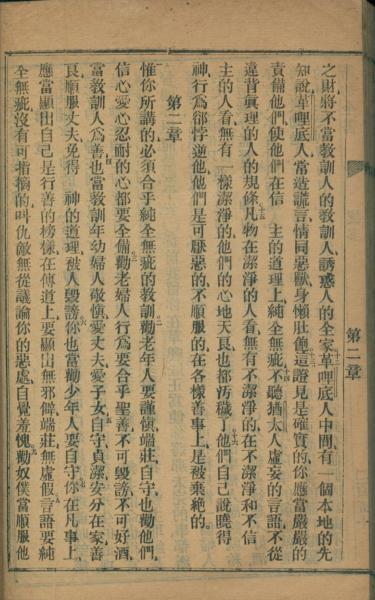 之財將不當教訓人的教訓人、誘惑人的全家革哩底人中間有一個本地的先
知說革哩底人、當造謊言、情同惡獸、身懶肚飽這證見是確實的你應當嚴嚴的
責備他們、使他們在信　主的道理上、純全無疵、不聽猶太人虛妄的言語、不從
違背眞理的人的規條、凡物在潔淨的人看、無有不潔淨的、在不潔淨和不信
主的人看、無有一樣潔淨的、他們的心地天良也都污穢了、他們自己說曉得
神、行爲卻悖逆他、他們是可厭惡的、不順服的、在各樣善事上、是被棄絶的。
第二章
惟你所講的、必須合乎純全無疵的教訓、勸老年人、要謹愼、端莊、自守、也勸他們、
信心愛心忍耐的心、都要全備、勸老婦人、行爲要合乎聖善、不可毀謗、不可好酒、
當教訓人爲善、也當教訓年幼婦人、敬愼愛丈夫、愛子女、自守、貞潔、安分在家、善
良、順服丈夫、免得　神的道理、被人毀謗、你也當勸少年人、要自守、你在凡事上、
應當顯出自己是行善的榜樣、在傳道上、要顯出無邪僻、端莊、無虛假、言語要純
全無疵、沒有可指摘的、叫仇敵無從議論你的惡處、自覺羞愧、勸奴僕當順服他
第二章